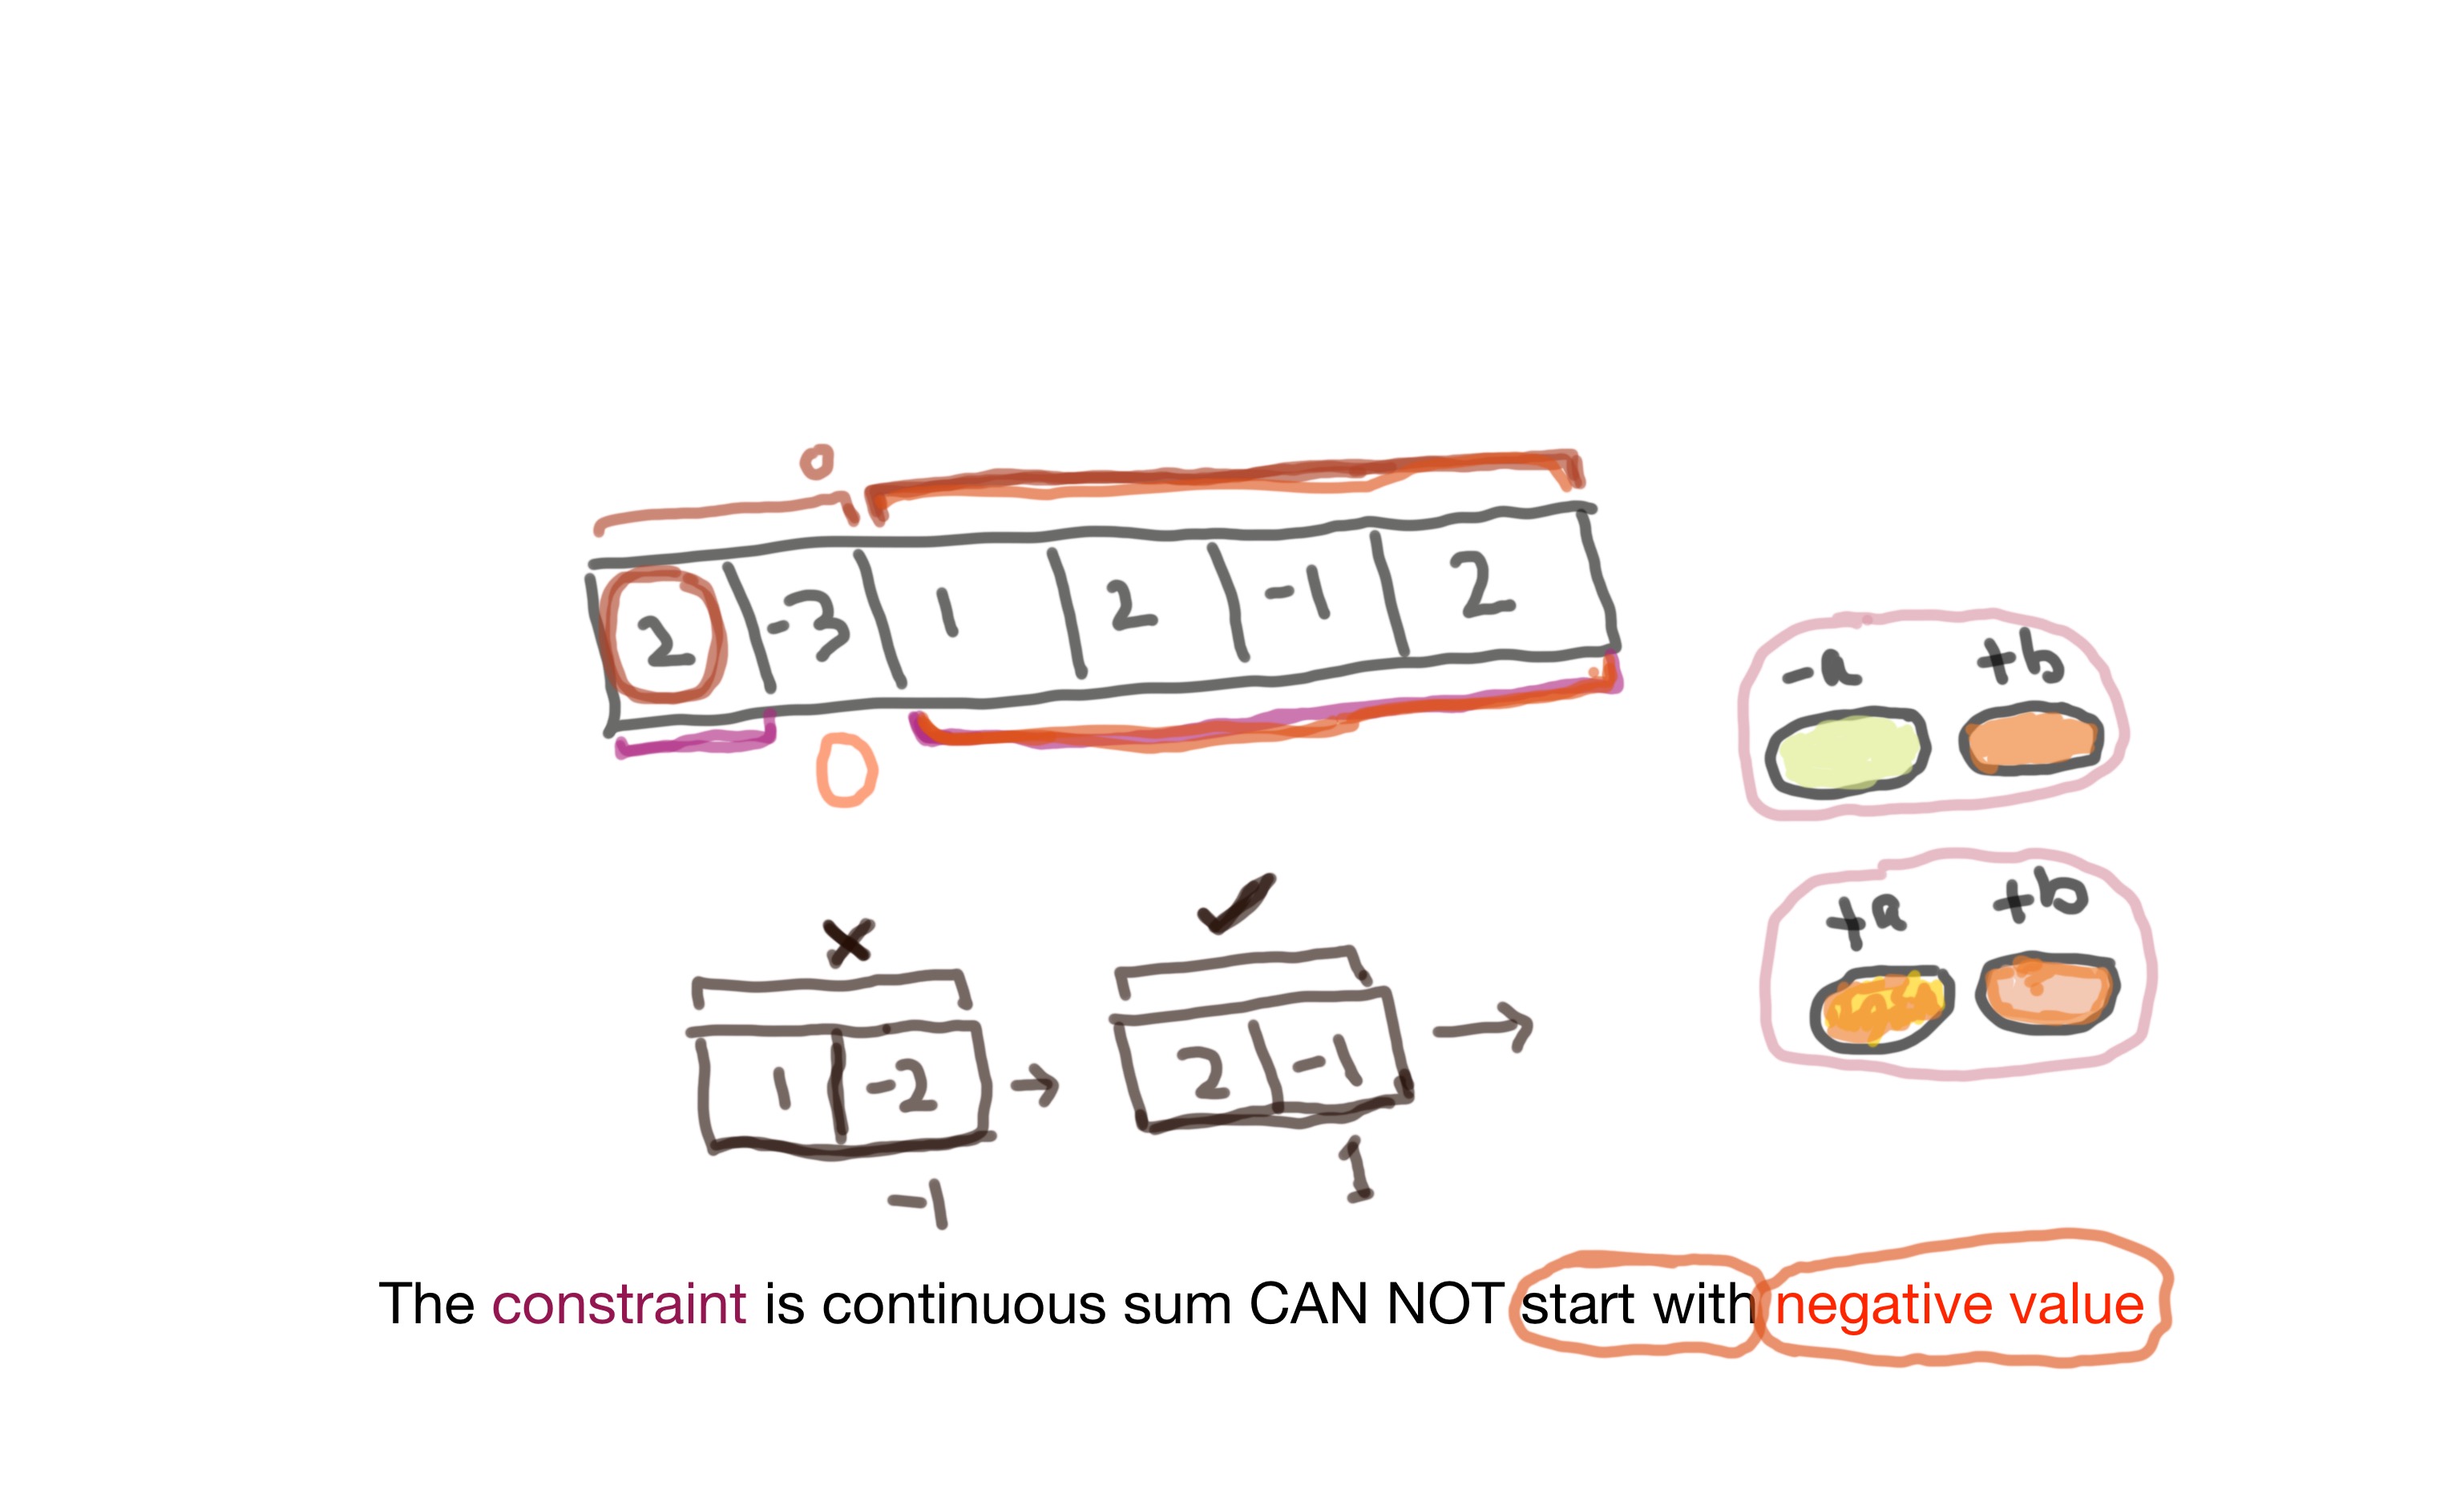 0
2 -3 1 2 -1 2
0
-a +b
+a +b
1 -2 2 -1
-1 1
The constraint is continuous sum CAN NOT start with negative value